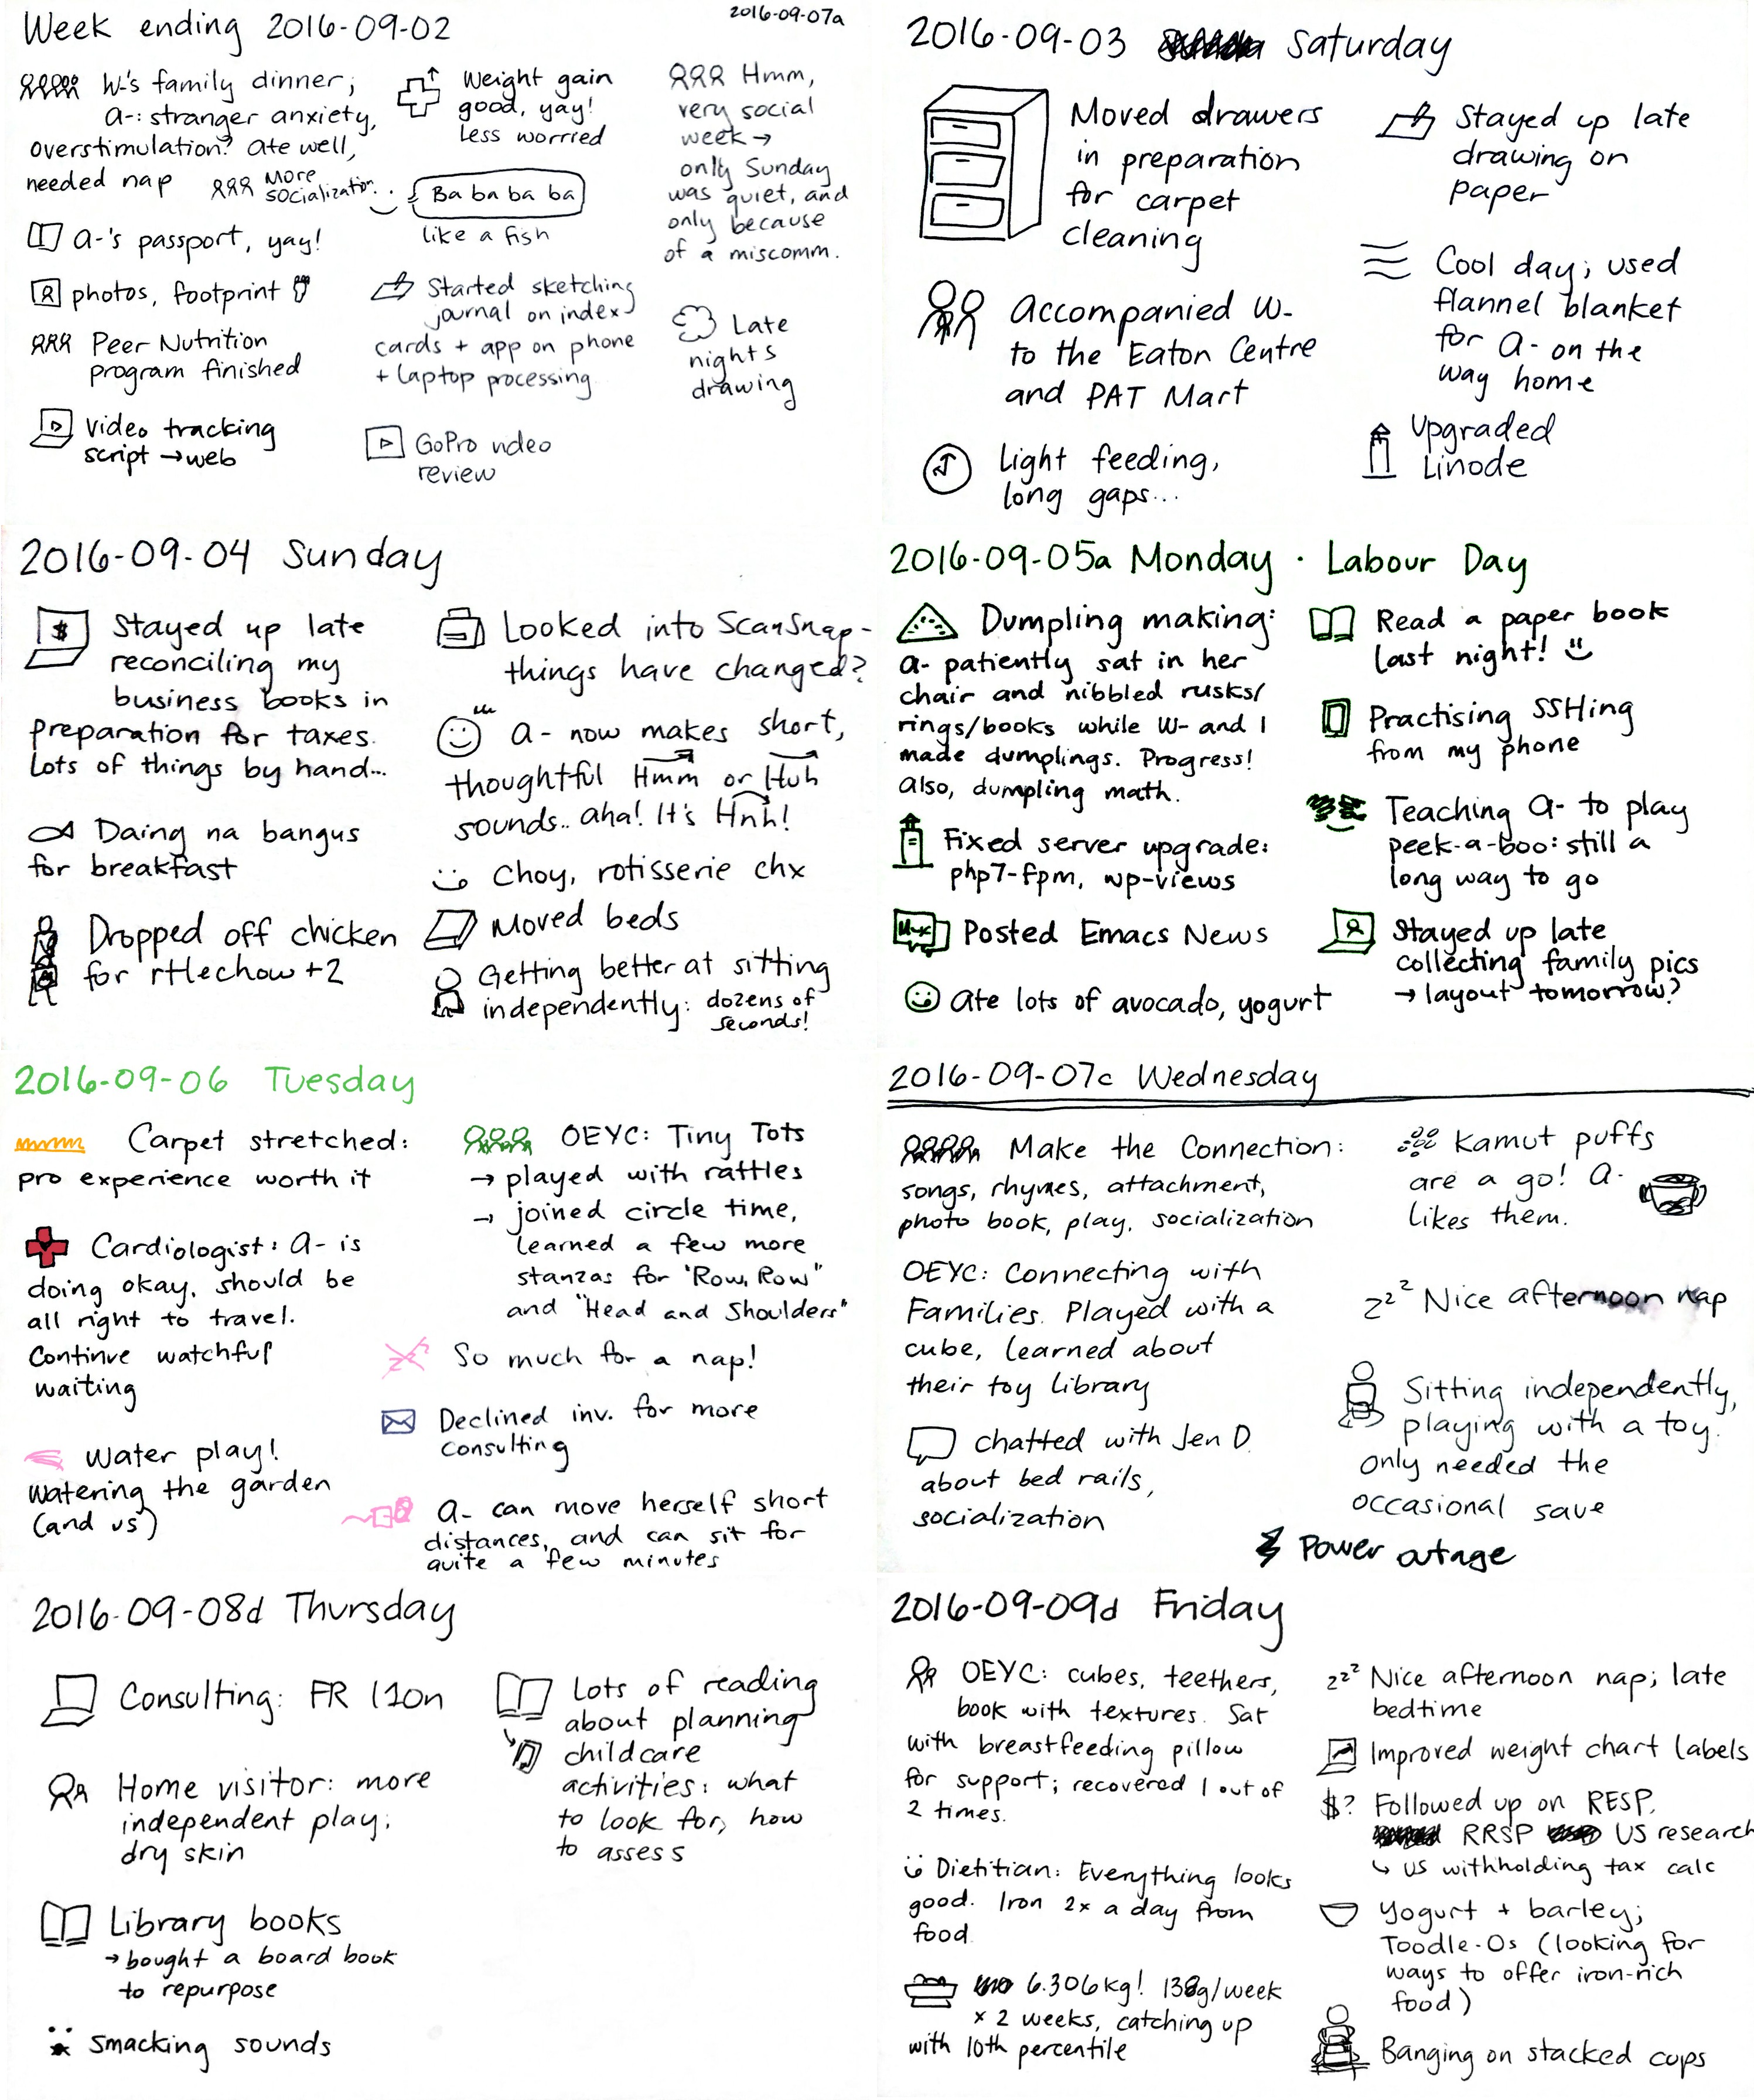 Week ending 2016-09-02
2016-09-07a
W-'s family dinner;
a-: stranger anxiety,
overstimulation? ate well,
needed nap
More
socialization
a-'s passport, yay!
photos, footprint
Peer Nutrition
program finished
video tracking
script → web
Weight gain
good, yay!
Less worried
Ba ba ba ba
like a fish
Started sketching
journal on index
cards + app on phone
+ laptop processing
GoPro video
review
Hmm,
very social
week →
only Sunday
was quiet, and
only because
of a miscomm.
Late
nights
drawing
2016-09-03 Saturday
Moved drawers
in preparation
for carpet
cleaning
Accompanied W-
to the Eaton Centre
and PAT Mart
Light feeding,
long gaps...
Stayed up late
drawing on
paper
Cool day; used
flannel blanket
for a- on the
way home
Upgraded
Linode
2016-09-04 Sunday
$ Stayed up late
reconciling my
business books in
preparation for taxes.
Lots of things by hand...
Daing na bangus
for breakfast
Dropped off chicken
for rtlechow +2
Looked into ScanSnap -
things have changed?
a- now makes short,
thoughtful Hmm or Huh
sounds.. aha! It's Hnh!
Choy, rotisserie chx
Moved beds
Getting better at sitting
independently: dozens of
seconds!
2016-09-05a Monday · Labour Day
Dumpling making:
a- patiently sat in her
chair and nibbled rusks/
rings/books while W- and I
made dumplings. Progress!
Also, dumpling math.
Fixed server upgrade:
php7-fpm, wp-views
M-x Posted Emacs News
Ate lots of avocado, yogurt
Read a paper book
last night!
Practising SSHing
from my phone
Teaching a- to play
peek-a-boo: still a
long way to go
Stayed up late
collecting family pics
→ layout tomorrow?
2016-09-06 Tuesday
Carpet stretched:
pro experience worth it
Cardiologist: a- is
doing okay, should be
all right to travel.
Continue watchful
waiting
Water play!
Watering the garden
(and us)
OEYC: Tiny Tots
→ played with rattles
→ joined circle time,
learned a few more
stanzas for "Row, Row"
and "Head and Shoulders"
So much for a nap!
Declined inv. for more
consulting
a- can move herself short
distances, and can sit for
quite a few minutes
2016-09-07c Wednesday
Make the Connection:
songs, rhymes, attachment,
photo book, play, socialization
OEYC: Connecting with
Families. Played with a
cube, learned about
their toy library
chatted with Jen D.
about bed rails,
socialization
Kamut puffs
are a go! a-
likes them.
zzz Nice afternoon nap
Sitting independently,
playing with a toy.
Only needed the
occasional save
Power outage
2016-09-08d Thursday
Consulting: FR l10n
Home visitor: more
independent play;
dry skin
Library books
→ bought a board book
to repurpose
smacking sounds
Lots of reading
about planning
childcare
activities: what
to look for, how
to assess
2016-09-09d Friday
OEYC: cubes, teethers,
book with textures. Sat
with breastfeeding pillow
for support; recovered 1 out of
2 times.
Dietitian: Everything looks
good. Iron 2x a day from
food
6.306kg! 138g/week
x 2 weeks, catching up
with 10th percentile
zzz Nice afternoon nap; late
bedtime
Improved weight chart labels
$? Followed up on RESP,
RRSP US research
↳ US withholding tax calc
Yogurt + barley;
Toodle-Os (looking for
ways to offer iron-rich
food)
Banging on stacked cups